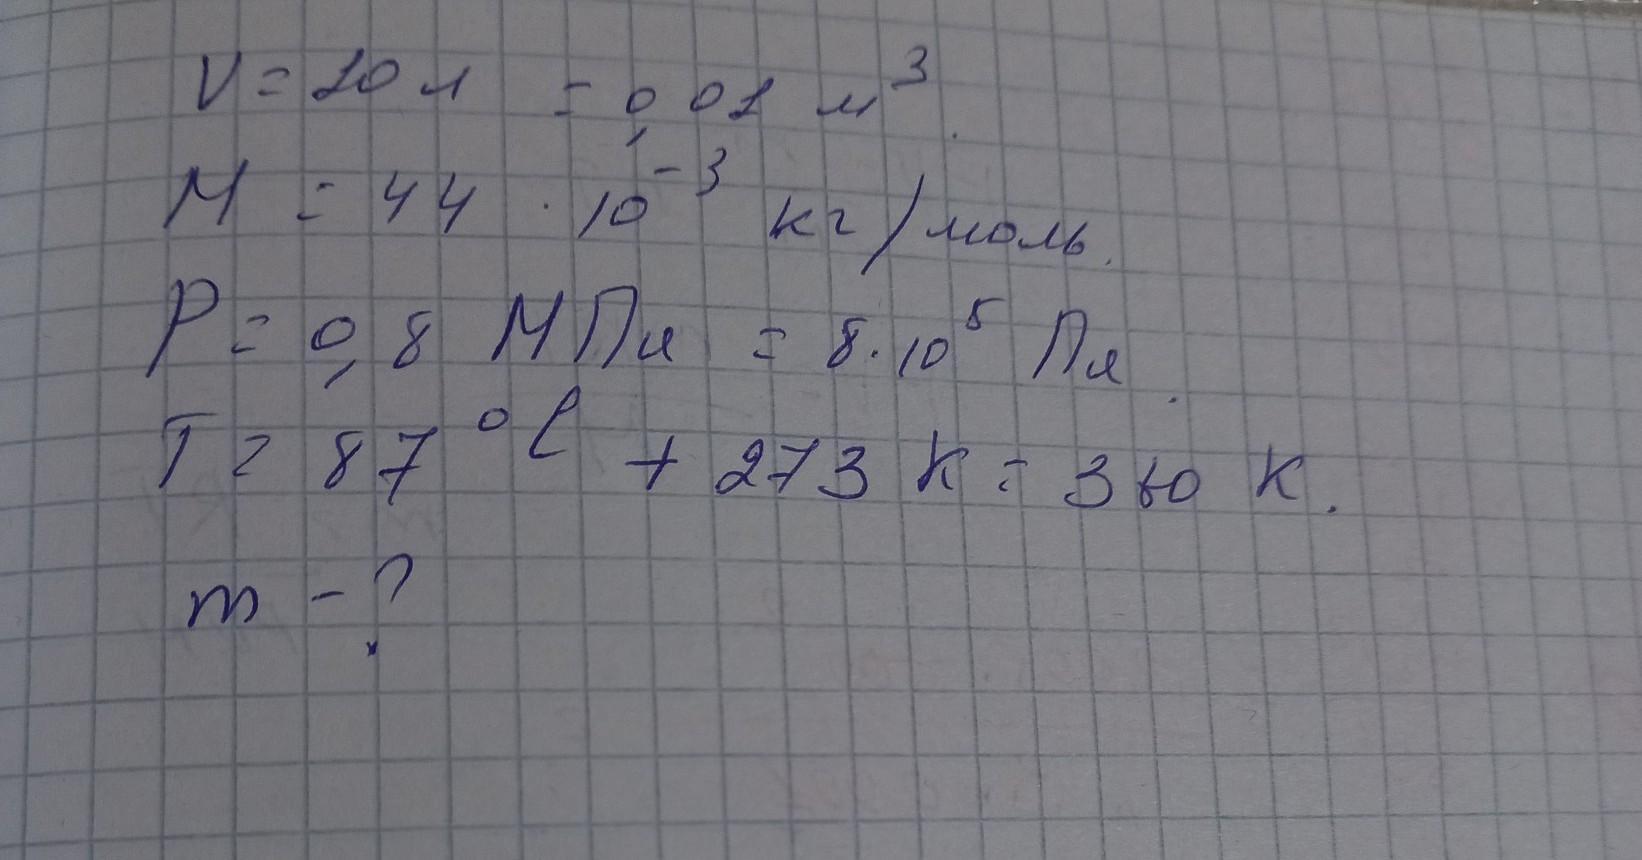 V = 10 л = 0,01 м³.
M = 44 · 10⁻³ кг/моль.
P = 0,8 МПа = 8·10⁵ Па.
T = 87 °C + 273 К = 360 К.
m - ?